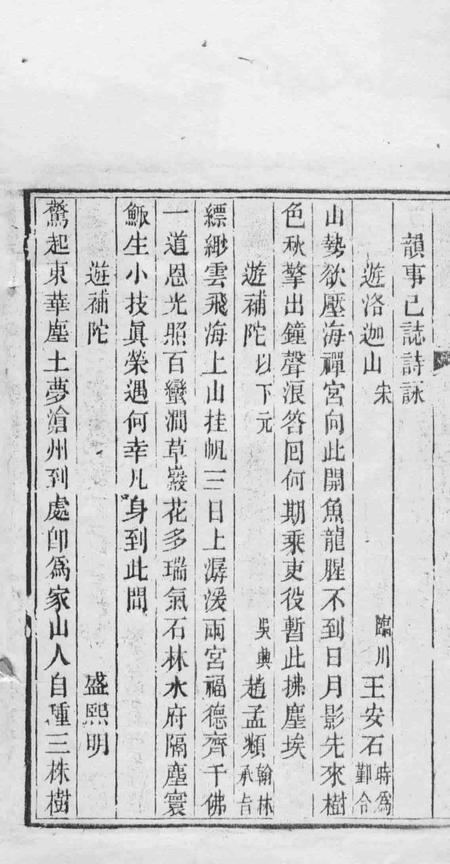 韻事已誌詩詠
遊洛迦山 宋 臨川 王安石 時爲鄞令
山勢欲壓海禪宮向此開魚龍腥不到日月影先來樹
色秋擎出鐘聲浪答回何期乘吏役暫此拂塵埃
遊補陀 以下元 吳興 趙孟頫 翰林承旨
縹緲雲飛海上山挂帆三日上潺湲兩宮福德齊千佛
一道恩光照百蠻澗草巖花多瑞氣石林水府隔塵寰
鯫生小技眞榮遇何幸凡身到此間
遊補陀 盛熙明
驚起東華塵土夢滄州到處卽爲家山人自種三株樹